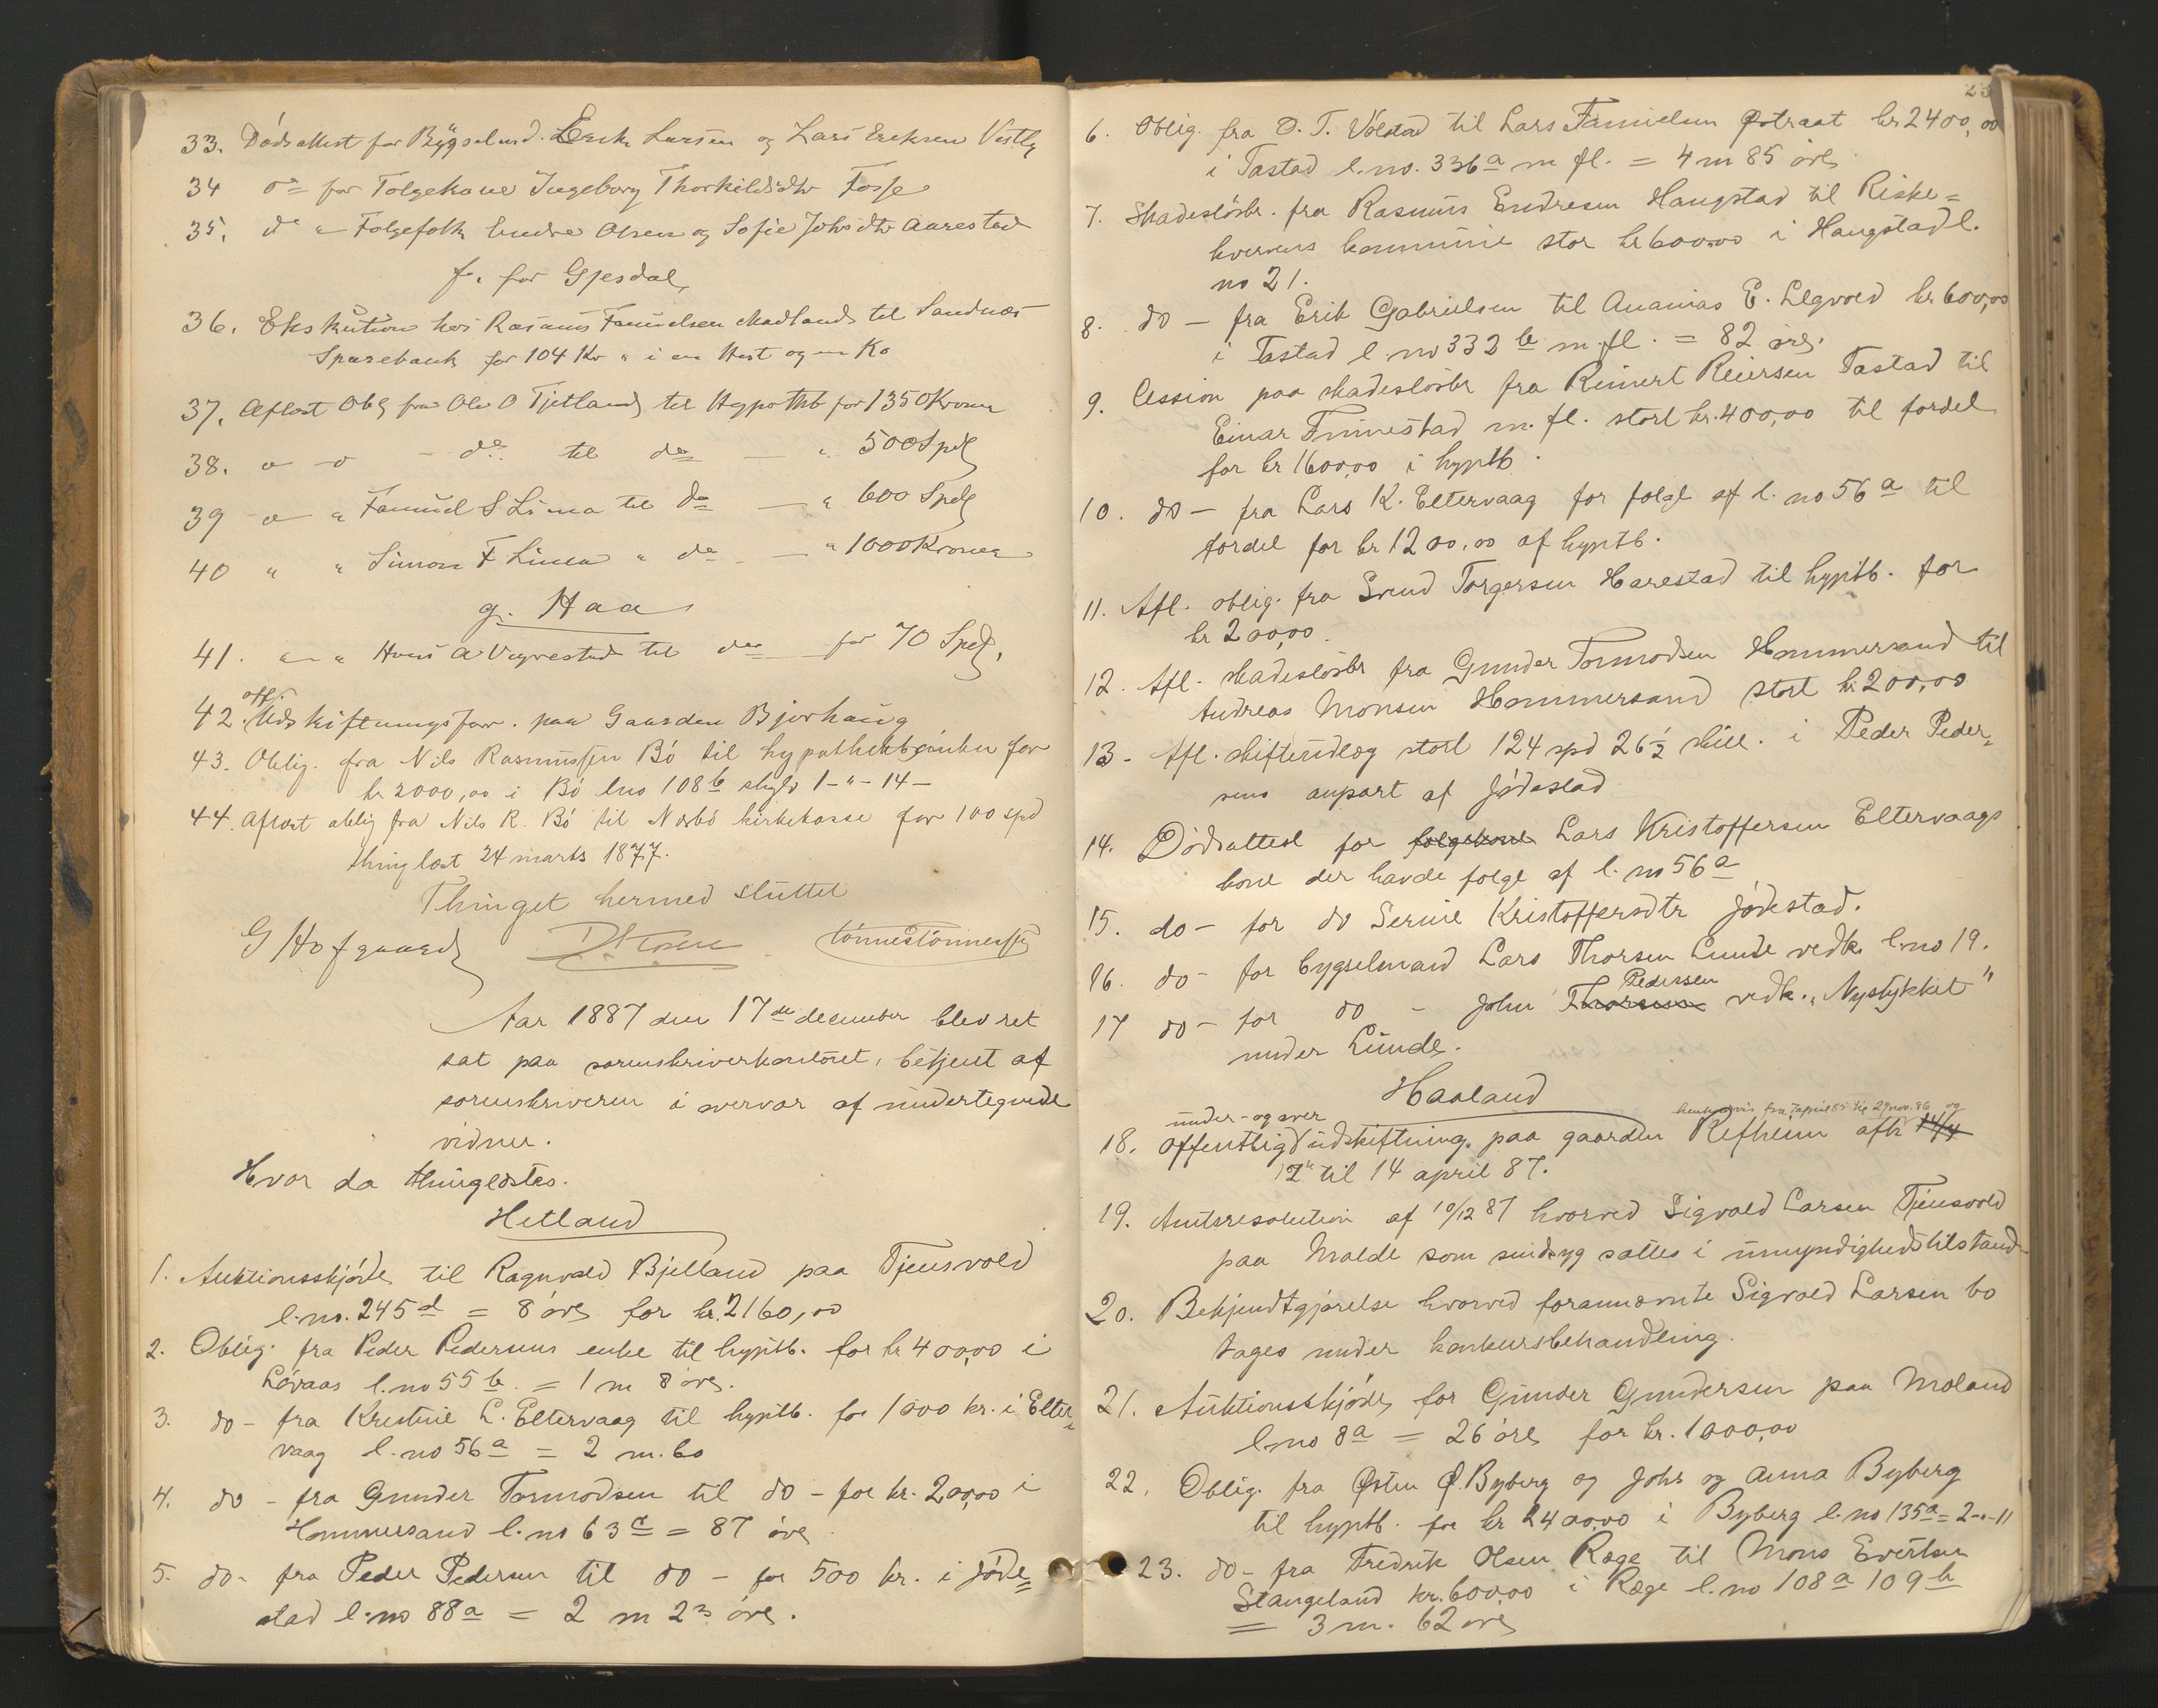 33. Dödsattest for Bygselmd. Erik Larsen og Lars Eriksen Vestly
34 do for Folgekone Ingeborg Thorkildsdtr Fosse
35. do " Folgefolk Endre Olsen og Sofie Johsdtr Aarestad
f. for Gjesdal
36. Ekskution hos Rasmus Samuelsen Madland til Sandnæs
Sparebank for 104 Kr " i en Hest og en Ko
37. Aflæst Obl fra Ole O Tjetland til Hypothb for 1350 Kroner
38. " - " - do til do — " 500 Spd
39 " " Samuel S Lima til do — " 600 Spd
40 " " Simon F Lima " do — " 1000 Kroner
g. Haa
41. " - " Hans A Vigrestad til do — for 70 Spd,
42. off. Udskiftningsforr. paa Gaarden Bjorhaug
43. Oblig. fra Nils Rasmussen Bö til hypothekbanken for
kr 2000,00 i Bö lno 108 b skyld 1 - " - 14 -
44. Aflæst oblig fra Nils R. Bö til Nærbö kirkekasse for 100 spd
thinglæst 24 marts 1877.
Thinget hermed sluttet
G Hofgaard Tönnes Tönnessen
Aar 1887 den 17de december blev ret
sat paa sorenskriverkontoret, betjent af
sorenskriveren i overvær af undertegnede
vidner.
Hvor da thinglæstes.
Hetland
1. Auktionsskjöde til Ragnvald Bjelland paa Tjensvold
l.no. 245 d = 8 öre for kr. 2160,00
2. Oblig. fra Peder Pedersens enke til hyptb. for kr 400,00 i
Lövaas l.no 55 b = 1 m 8 öre.
3. do - fra Kristine L. Eltervaag til hyptb. for 1000 kr. i Elter=
vaag l.no 56 a = 2 m. 60
4. do - fra Gunder Tormodsen til do - for kr. 200,00 i
Hommersand l.no 63 c = 87 öre
5. do - fra Peder Pedersen til do - for 500 kr. i Jöde=
stad l.no 88 a = 2 m 23 öre.
6. Oblig. fra O. T. Volstad til Lars Samuelsen Østraat kr 2400,00
i Tastad l.no. 336 a m fl. = 4 m 85 öre
7. Skadeslösbr. fra Rasmus Endresen Haugstad til Riske=
kverens kommune stor kr 600,00 i Haugstad l.
no 21.
8. do - fra Erik Gabrielsen til Ananias E. Legvold kr 600,00
i Tastad l.no 332 b m.fl. = 82 öre.
9. Cession paa skadeslösbr fra Reinert Reiersen Tastad til
Einar Finnestad m. fl. stort kr. 400,00 til fordel
for kr 1600,00 i hyptb.
10. do - fra Lars K. Eltervaag for folge af l. no 56 a til
fordel for kr 1200,00 af hyptb.
11. Afl. oblig. fra Svend Torgersen Harestad til hyptb. for
kr 200,00.
12. Afl. skadeslösbr fra Gunder Tormodsen Hommersand til
Andreas Monsen Hommersand stort kr 200,00
13. Afl. skifteudlæg stort 124 spd 26 1/2 skill. i Peder Peder=
sens anpart af Jödestad
14. Dödsattest for folgekone Lars Kristoffersen Eltervaags
kone der havde folge af l. no 56 a
15. do - for do Serine Kristoffersdtr Jödestad.
16. do - for bygselmand Lars Thorsen Lunde vedk. l.no 19.
Pedersen
17 do - for do - John Thorsen vedk. "Nystykket"
under Lunde.
Haaland
under- og over henholdsvis fra 7 april 85 til 29 nov. 86 og
18. Offentlig udskiftning paa gaarden Refheim afh 14/4
12te til 14 april 87.
19. Amtsresolution af 10/12 87 hvorved Sigvald Larsen Tjensvold
paa Malde som sindsyg sættes i umyndighedstilstand
20. Bekjendtgjörelse hvorved forannævnte Sigvald Larsen bo
tages under konkursbehandling.
21. Auktionsskjöde for Gunder Gundersen paa Moland
l.no 8 a = 26 öre for kr. 1000,00
22. Oblig. fra Østen Ø. Byberg og Johs og Anna Byberg
til hyptb. for kr 2400,00 i Byberg l.no 135 a = 2 - " - 11
23. do - fra Fredrik Olsen Ræge til Mons Evertsen
Stangeland kr. 600,00 i Ræge l.no 108 a 109 b
= 3 m. 62 öre